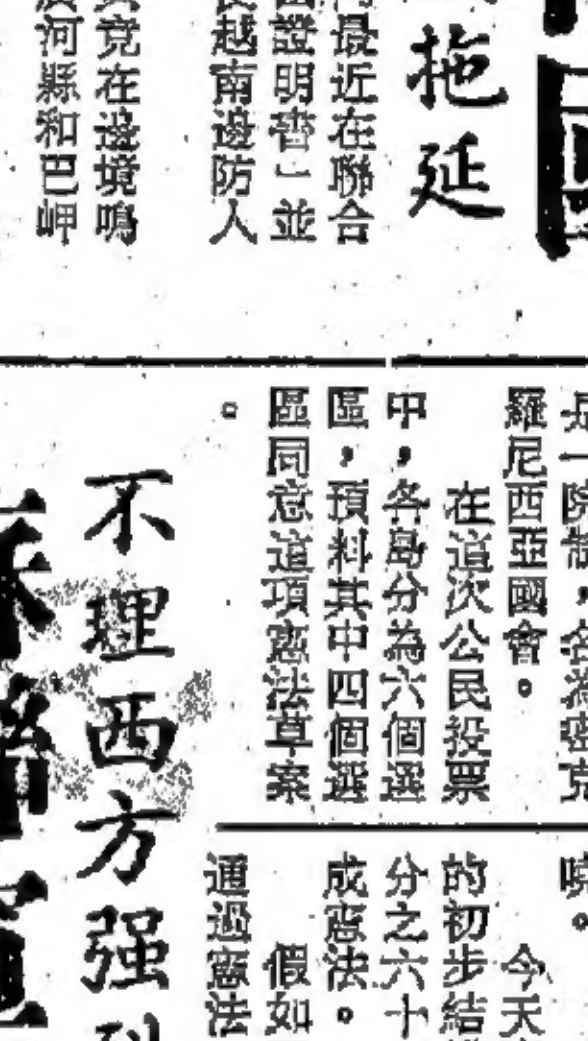 拖延
最近在聯合
證明書」並
越南邊防人
竟在邊境鳴
河縣和巴岬
是一院制，名為密克
羅尼西亞國會。
在這次公民投票
中，各島分為六個選
區，預料其中四個選
區同意這項憲法草案
。
不理西方强
曉。
今天
的初步結
分之六十
成憲法。
假如
通過憲法